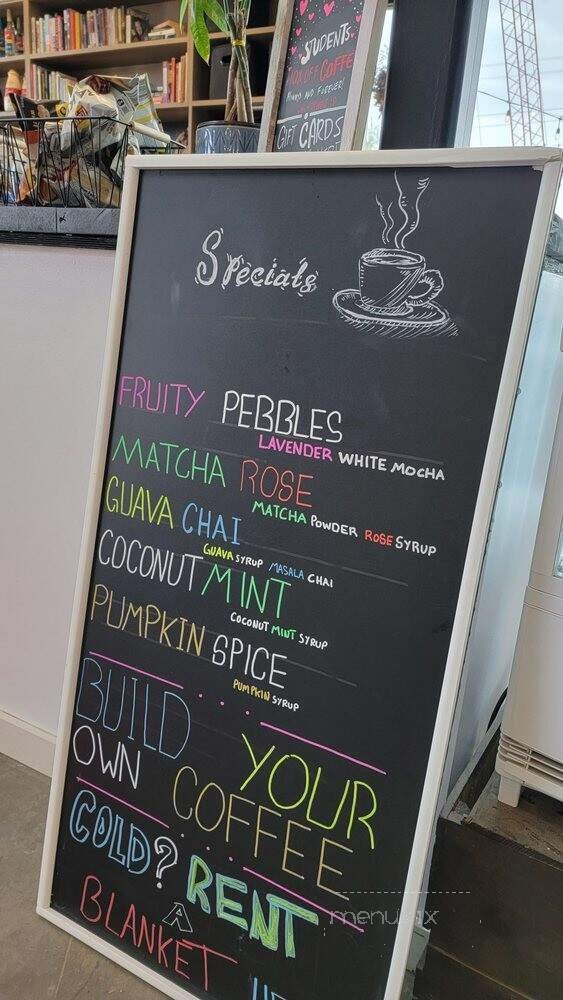 STUDENTS
GIFT CARDS
Specials
FRUITY PEBBLES
LAVENDER WHITE MOCHA
MATCHA ROSE
MATCHA POWDER ROSE SYRUP
GUAVA CHAI
GUAVA SYRUP MASALA CHAI
COCONUT MINT
COCONUT MINT SYRUP
PUMPKIN SPICE
PUMPKIN SYRUP
BUILD YOUR
OWN COFFEE
COLD? RENT
A
BLANKET